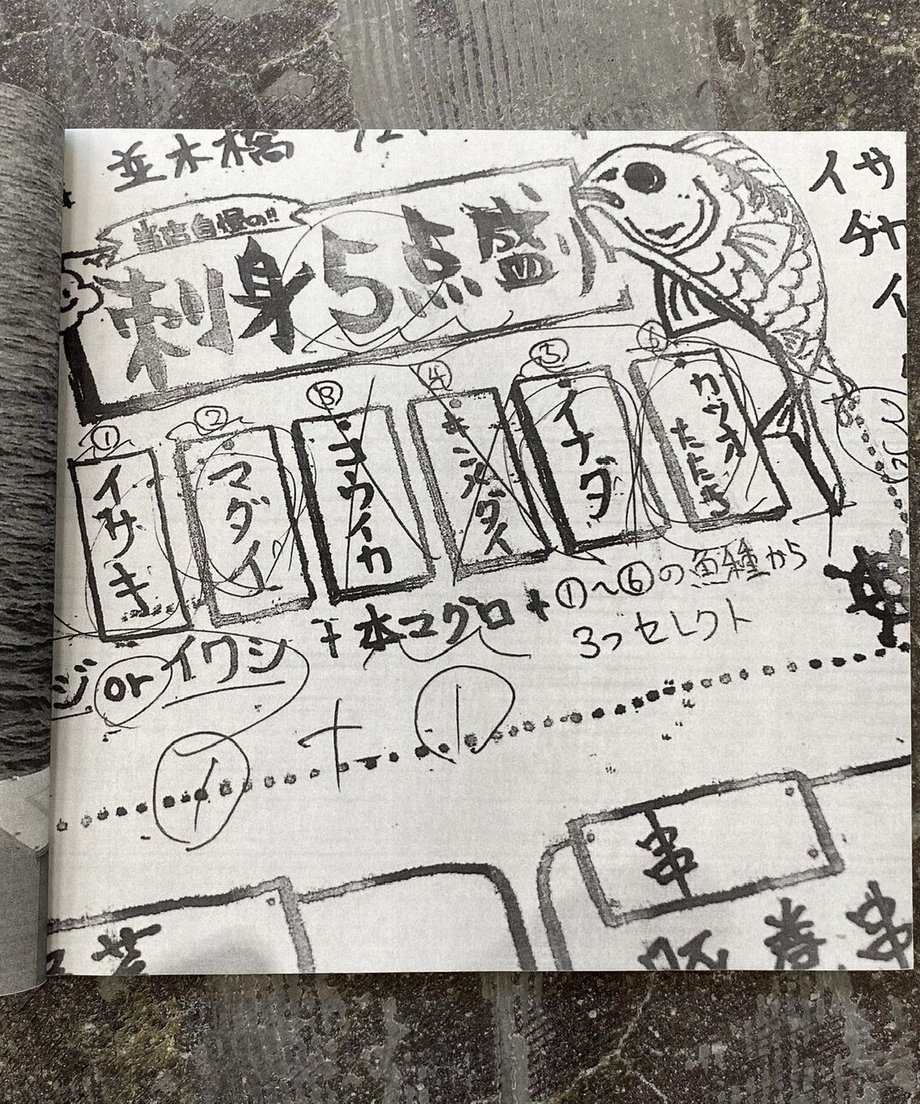 並木橋
当店自慢の!!
刺身5点盛り
① イサキ
② マダイ
③ コウイカ
④ キンメダイ
⑤ イナダ
⑥ カツオたたき
ジorイワシ + 本マグロ + ①〜⑥の魚種から
3つセレクト
イ + 1
イサ
チャ
イ
串
巻串